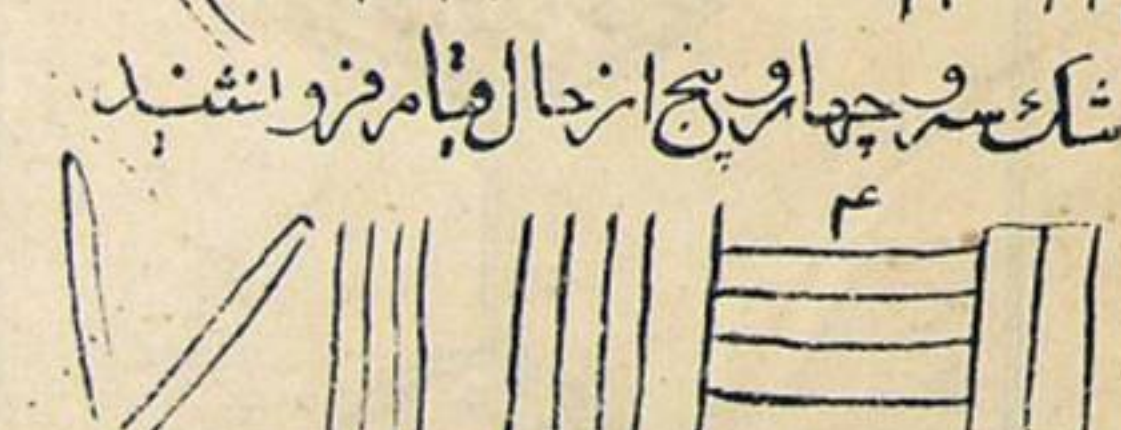 شک سه و چهار و پنج از حال قیام فرو نشیند
۴